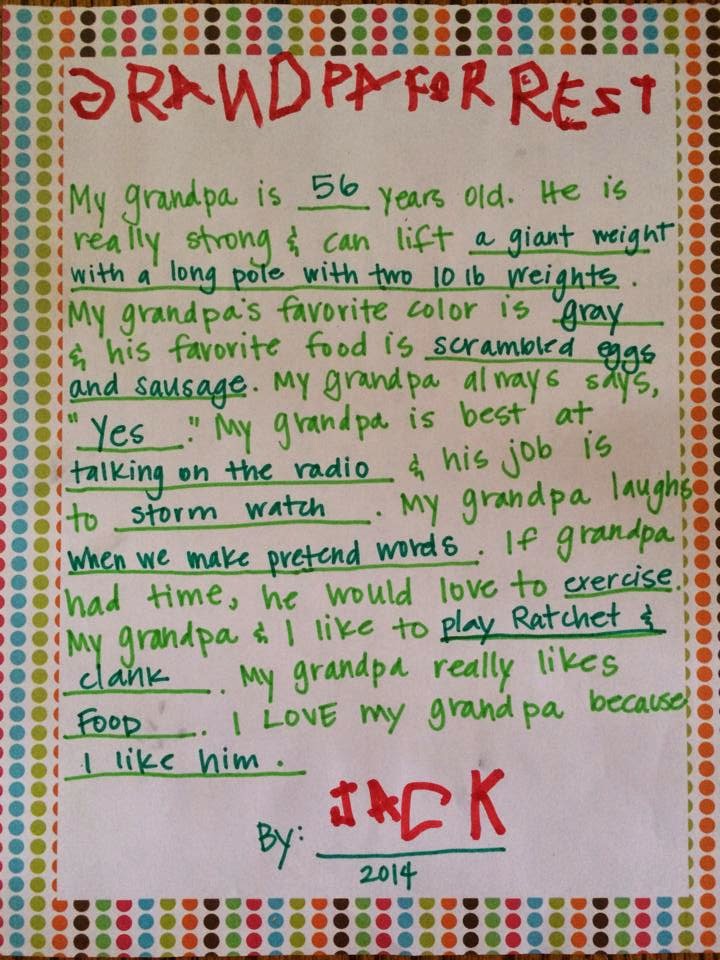 GRANDPA FORREST
My grandpa is 56 years old. He is
really strong & can lift a giant weight
with a long pole with two 10 lb weights.
My grandpa's favorite color is gray
& his favorite food is scrambled eggs
and sausage. My grandpa always says,
"Yes." My grandpa is best at
talking on the radio & his job is
to storm watch. My grandpa laughs
when we make pretend words. If grandpa
had time, he would love to exercise.
My grandpa & I like to play Ratchet &
clank. My grandpa really likes
Food. I LOVE my grandpa because
I like him.
By: JACK
2014